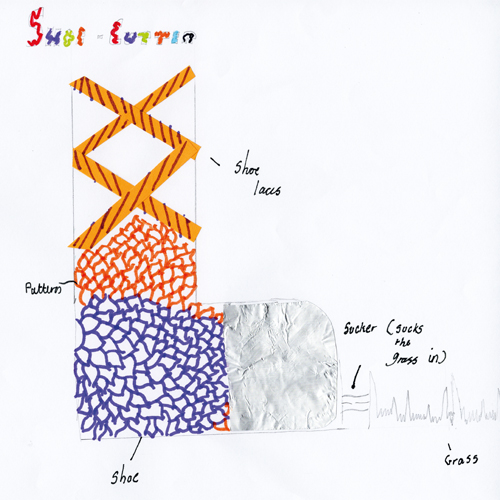 Shoe - Cutter
Shoe
laces
Pattern
Sucker (sucks
the
grass in)
Shoe
Grass